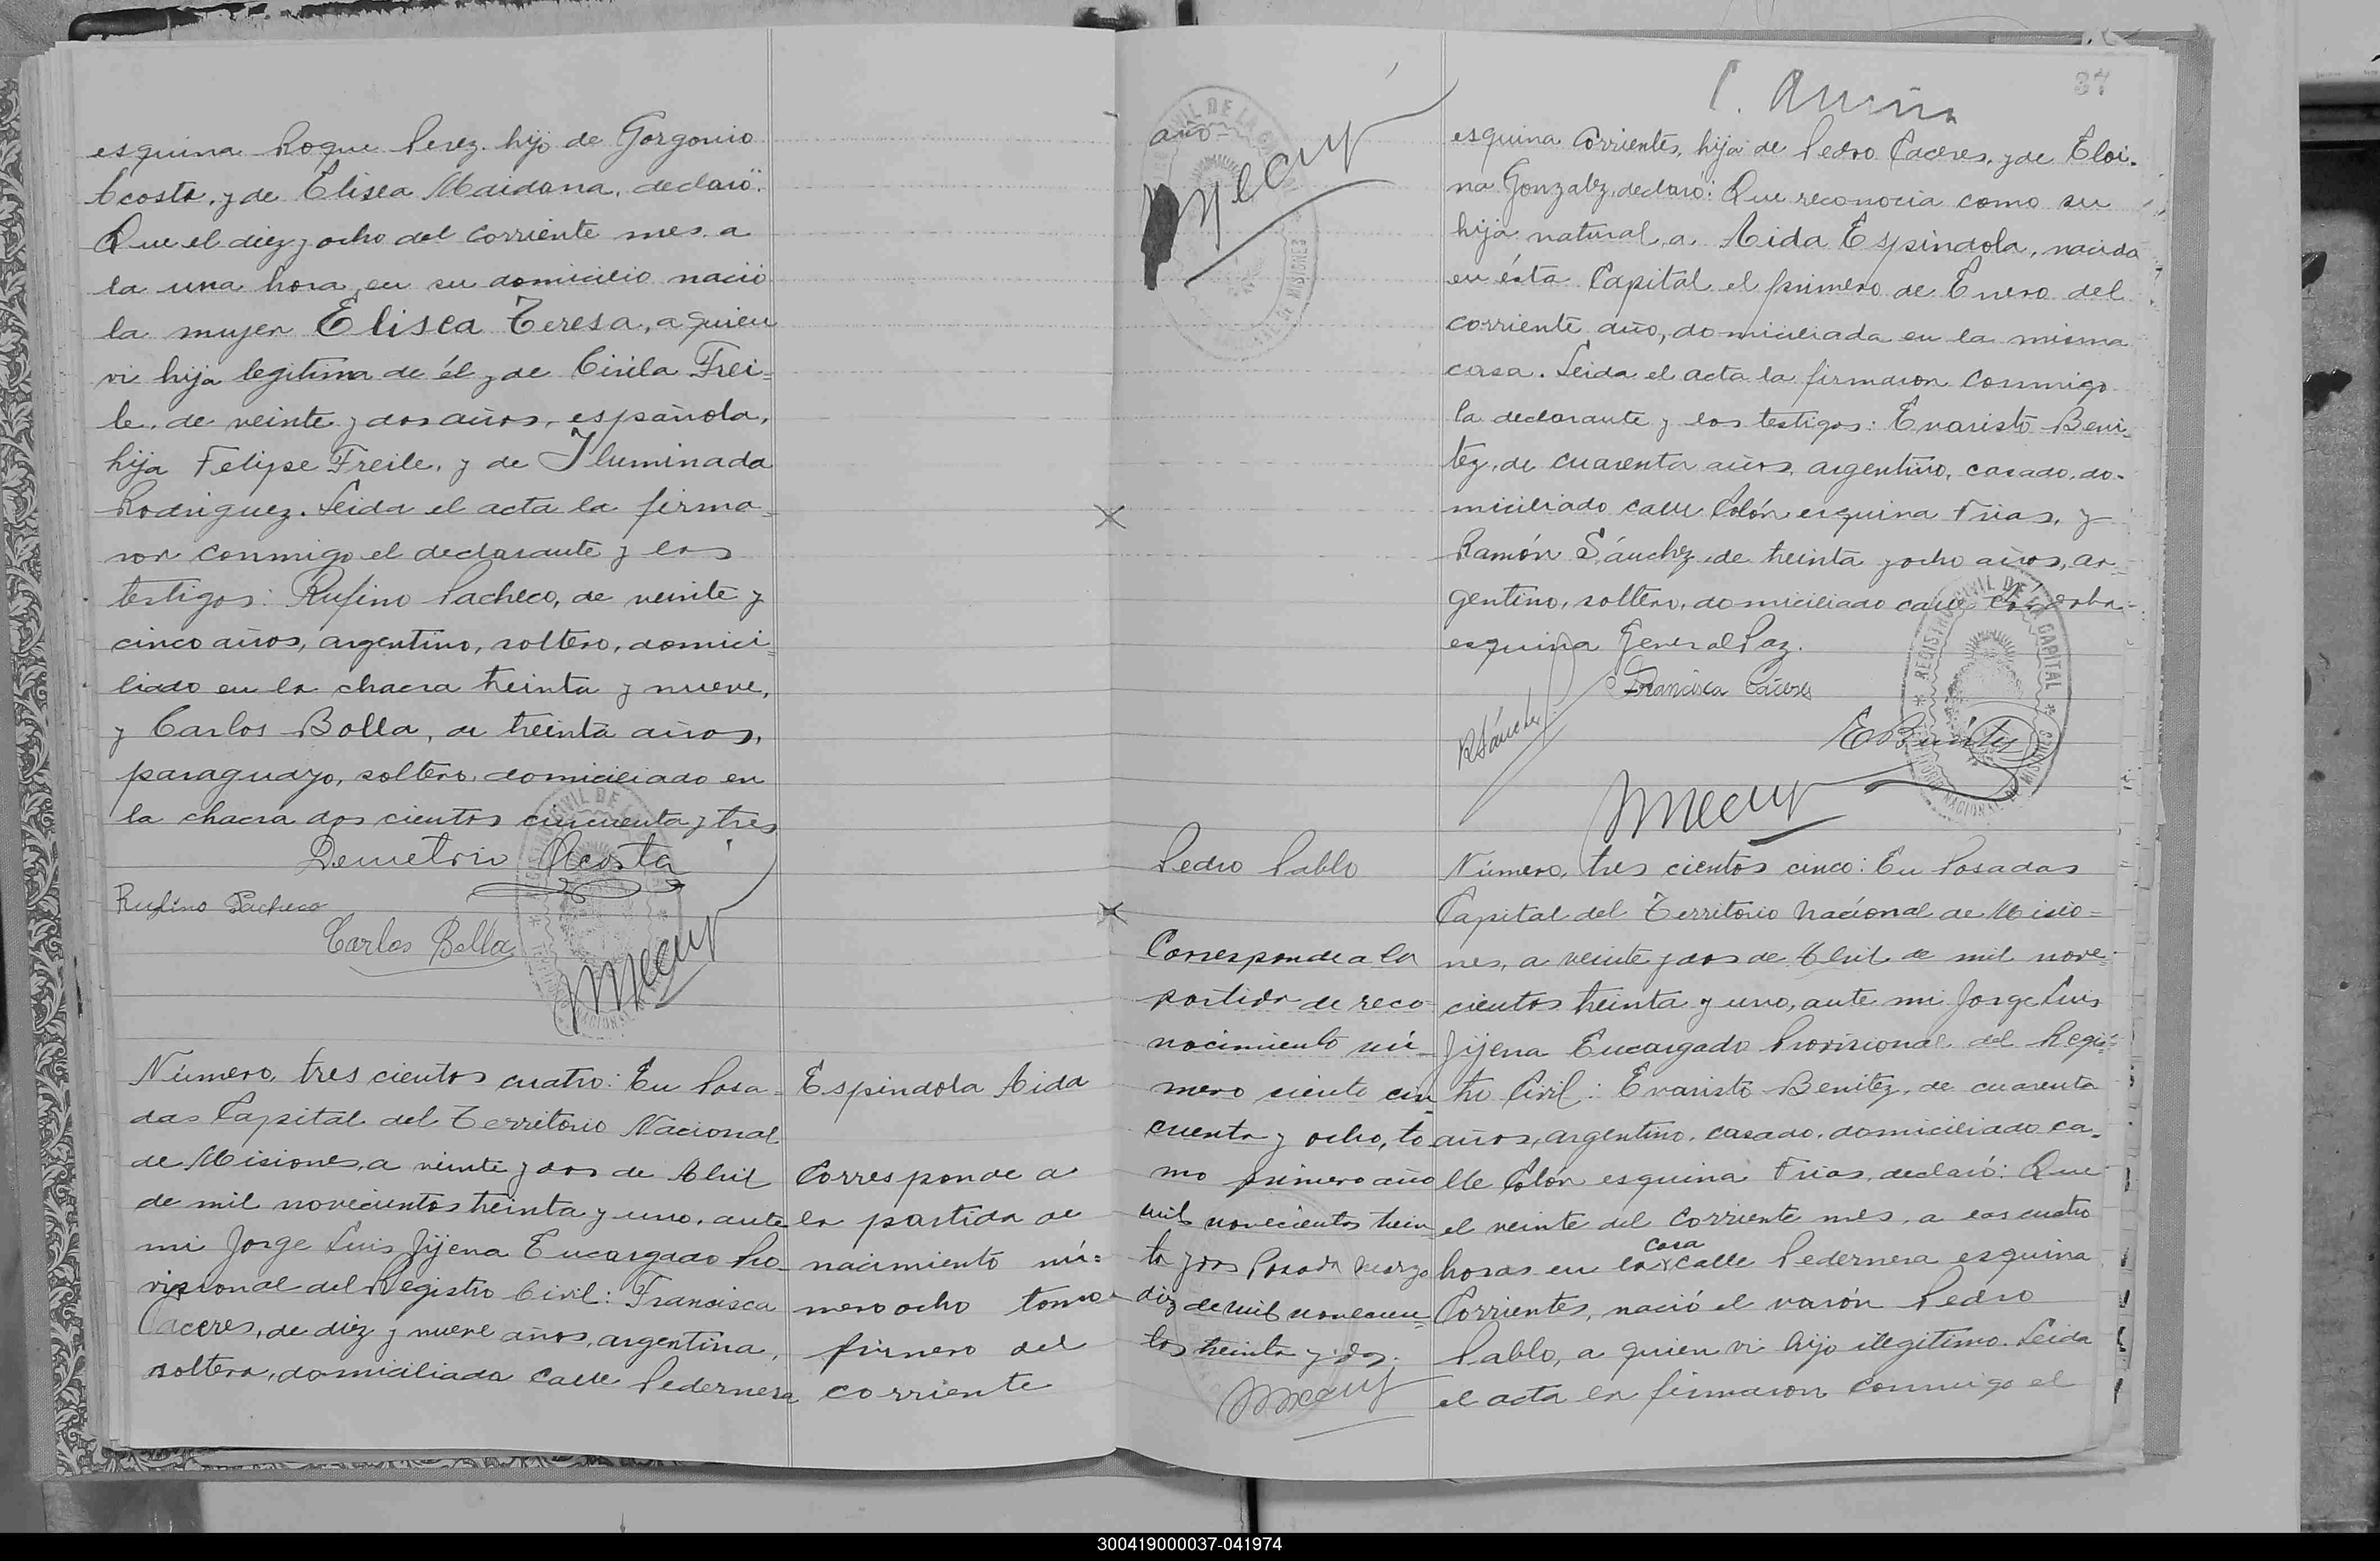 esquina Roque Perez, hijo de Gorgonio
Acosta, y de Elisea Maidana, declaró:
Que el diez y ocho del corriente mes a
la una hora, en su domicilio nació
la mujer Elisea Teresa, a quien
vi hija legitima de él y de Cirila Frei=
le, de veinte y dos años, española,
hija Felipe Freile, y de Iluminada
Rodriguez. Leida el acta la firma=
ron conmigo el declarante y los
testigos: Rufino Pacheco, de veinte y
cinco años, argentino, soltero, domici=
liado en la chacra treinta y nueve,
y Carlos Bolla, de treinta años,
paraguayo, soltero, domiciliado en
la chacra dos cientos cincuenta y tres
Demetrio Acosta
Rufino Pacheco
Carlos Bolla
Número, tres cientos cuatro: En Posa=
das Capital del Territorio Nacional
de Misiones, a veinte y dos de Abril
de mil novecientos treinta y uno, ante
mi Jorge Luis Jijena Encargado Pro=
visional del Registro Civil: Francisca
Caceres, de diez y nueve años, argentina,
soltera, domiciliada calle Pedernera
Espindola Aida
Corresponde a
la partida de
nacimiento nú=
mero ocho tomo
primero del
corriente
año
37
esquina Corrientes, hija de Pedro Caceres, y de Eloi-
na Gonzalez, declaró: Que reconocia como su
hija natural, a Aida Espindola, nacida
en ésta Capital el primero de Enero del
corriente año, domiciliada en la misma
casa. Leida el acta la firmaron conmigo
la declarante y los testigos: Evaristo Beni=
tez, de cuarenta años, argentino, casado, do-
miciliado calle Colón esquina Frias, y
Ramón Sánchez, de treinta y ocho años, ar=
gentino, soltero, domiciliado calle Cordoba-
esquina General Paz.
Francisca Cáceres
RSánchez
EBenítez
REGISTRO CIVIL DE LA CAPITAL
Pedro Pablo
Corresponde a la
partida de reco-
nocimiento nú-
mero ciento cin
cuenta y ocho, to
mo primero año
mil novecientos trein
ta y dos Posada Marzo
diez de mil novecien=
tos treinta y dos.
Número, tres cientos cinco: En Posadas
Capital del Territorio Nacional de Misio=
nes, a veinte y dos de Abril de mil nove-
cientos treinta y uno, ante mi Jorge Luis
Jijena Encargado Provisional del Regis=
tro Civil: Evaristo Benitez, de cuarenta
años, argentino, casado, domiciliado ca-
lle Colón esquina Frias, declaró: Que
el veinte del corriente mes, a las cuatro
casa
horas en la calle Pedernera esquina
Corrientes, nació el varón Pedro
Pablo, a quien vi hijo ilegitimo. Leida
el acta la firmaron conmigo el
300419000037-041974